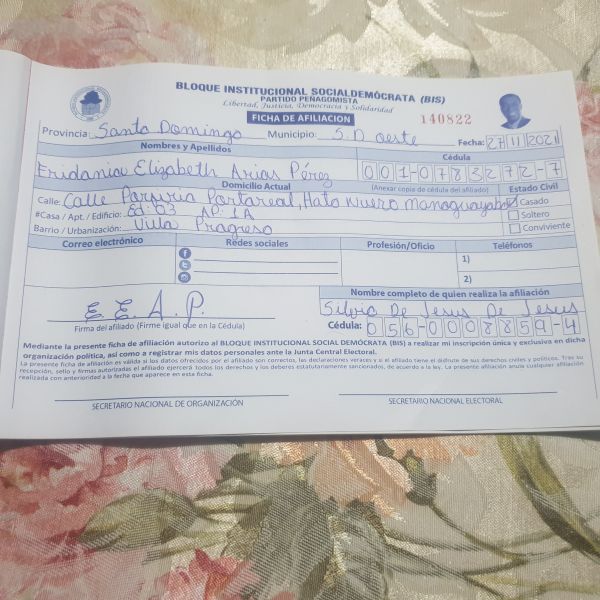 BLOQUE INSTITUCIONAL SOCIALDEMÓCRATA (BIS)
PARTIDO PEÑAGOMISTA
Libertad, Justicia, Democracia y Solidaridad
FICHA DE AFILIACION 140822
Provincia: Santo Domingo Municipio: S.D. oeste Fecha: 27/11/2021
Nombres y Apellidos Cédula
Fridania Elizabeth Arias Pérez 001-0783272-7
Domicilio Actual (Anexar copia de cédula del afiliado) Estado Civil
Calle: Calle Porfiria Portareal, Hato Nuevo Manoguayabo Casado
#Casa / Apt. / Edificio: Ed: 03 AP: 1A Soltero
Barrio / Urbanización: Villa Progreso Conviviente
Correo electrónico Redes sociales Profesión/Oficio Teléfonos
1)
2)
Nombre completo de quien realiza la afiliación
E. E. A. P. Silvio De Jesus De Jesus
Firma del afiliado (Firme igual que en la Cédula) Cédula: 056-0008859-4
Mediante la presente ficha de afiliación autorizo al BLOQUE INSTITUCIONAL SOCIAL DEMÓCRATA (BIS) a realizar mi inscripción única y exclusiva en dicha
organización política, así como a registrar mis datos personales ante la Junta Central Electoral.
La presente ficha de afiliación es válida si los datos ofrecidos por el afiliado son correctos, las declaraciones veraces y si el afiliado tiene el disfrute de sus derechos civiles y políticos. Tras su
recepción, sello y firmas autorizadas el afiliado ejercerá todos los derechos y los deberes estatutariamente sancionados, de acuerdo a la ley. La presente afiliación anula cualquier afiliación
realizada con anterioridad a la fecha que aparece en esta ficha.
SECRETARIO NACIONAL DE ORGANIZACIÓN SECRETARIO NACIONAL ELECTORAL